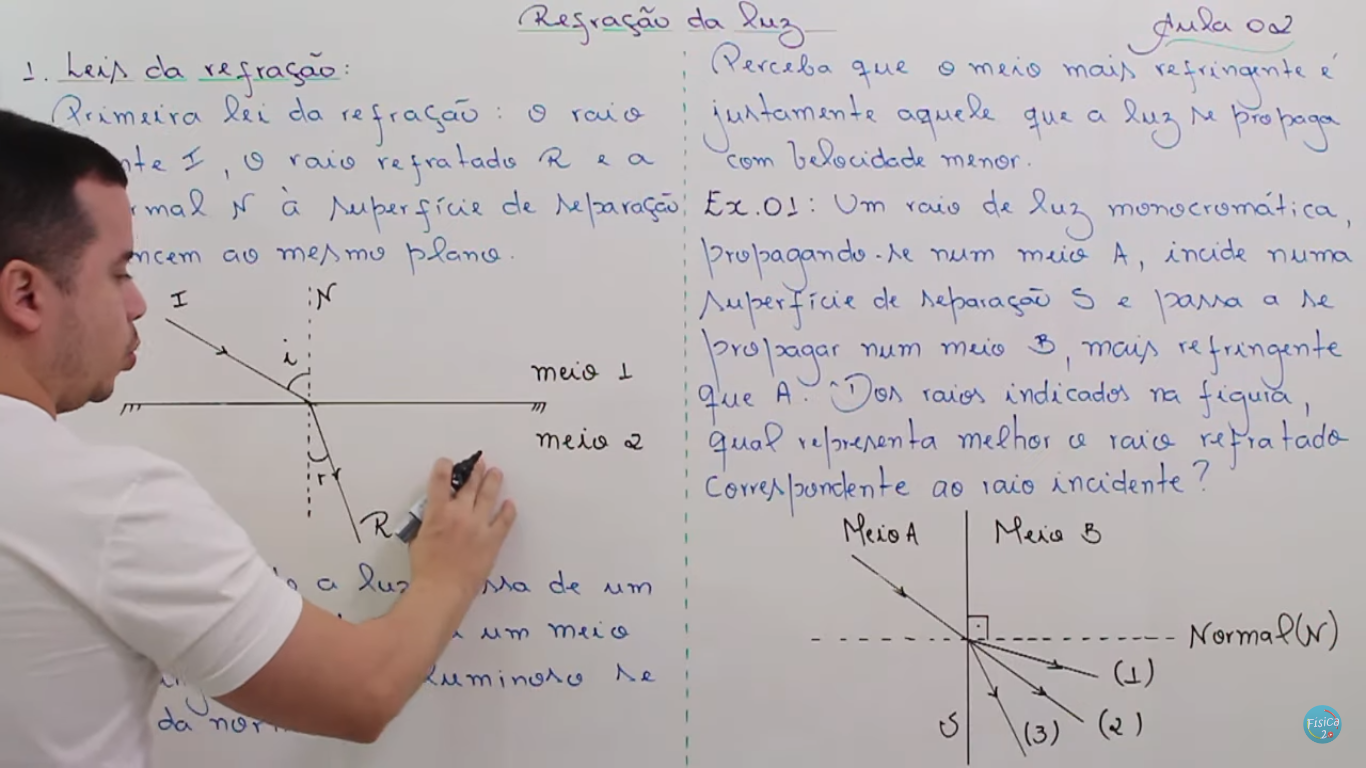 Refração da luz
Aula 02
1. Leis da refração:
Primeira lei da refração: o raio
I, o raio refratado R e a
N à superfície de separação
ao mesmo plano.
I
N
i
meio 1
meio 2
r
R
a luz de um
um meio
luminoso se
da
Perceba que o meio mais refringente é
justamente aquele que a luz se propaga
com velocidade menor.
Ex.01: Um raio de luz monocromática,
propagando-se num meio A, incide numa
superfície de separação S e passa a se
propagar num meio B, mais refringente
que A. Dos raios indicados na figura,
qual representa melhor o raio refratado
correspondente ao raio incidente?
Meio A
Meio B
Normal(N)
(1)
(2)
(3)
S
Física
2.0